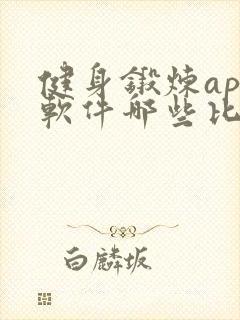 健身鍛炼ap
軟件哪些比
白麟坂